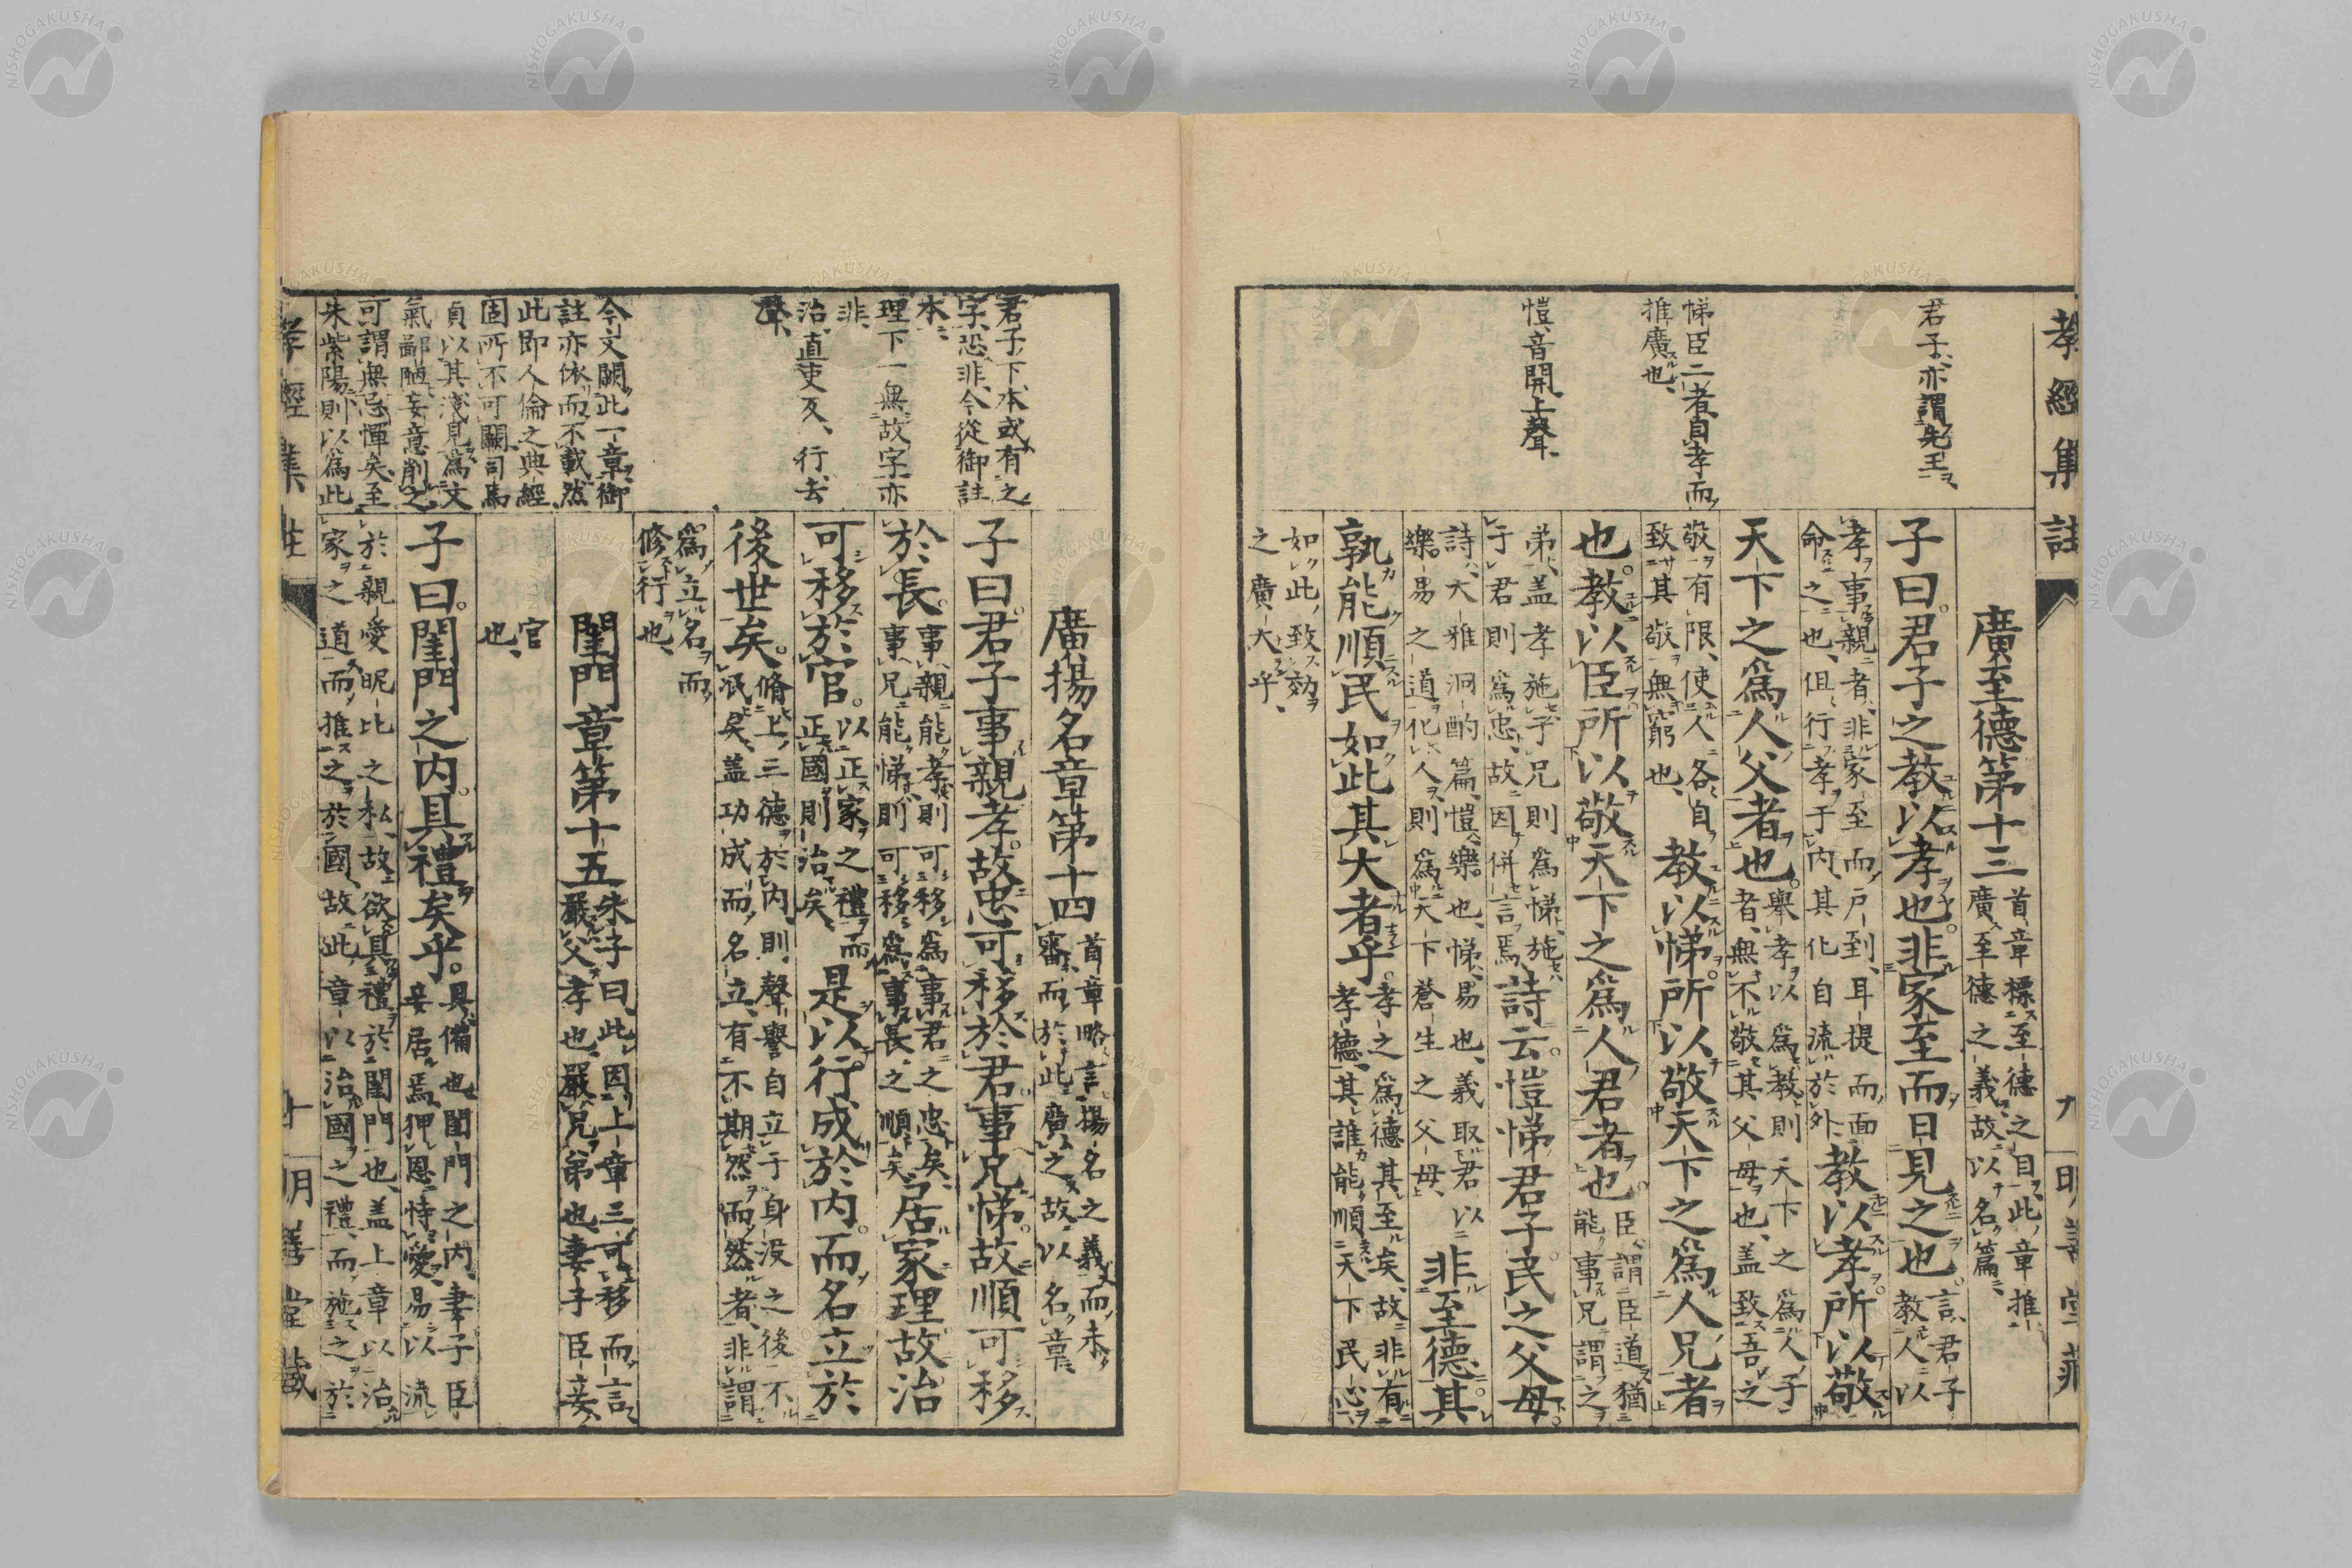 孝經集註
九 明善堂藏
君子亦謂先王
悌臣二者自孝而
推廣也
愷音開上聲
廣至德第十三首章標至德之目此章推廣至德之義故以名篇
子曰君子之教以孝也非家至而日見之也言君子教人以
孝事親者非家至而戶到耳提而面命之也但行孝于内其化自流於外教以孝所以敬
天下之爲人父者也舉孝以爲教則天下之爲人子者無不敬其父母也盖致吾之
敬有限使人各自致其敬無窮也教以悌所以敬天下之爲人兄者
也教以臣所以敬天下之爲人君者也臣謂臣道猶能事兄謂之
弟盖孝施子兄則爲悌施于君則爲忠故因併言焉詩云愷悌君子民之父母
詩大雅泂酌篇愷樂也悌易也義取君以樂易之道化人則爲天下蒼生之父母非至德其
孰能順民如此其大者乎孝之爲德其至矣故非有孝德其誰能順天下民心
如此致効之廣大乎
君子下本或有之
字恐非今從御註
本
理下一無故字亦
非
治直吏反行去
聲
今文闕此一章御
註亦依而不載然
此即人倫之典經
固所不可闕司馬
貞以其淺見爲文
氣鄙陋妄意削之
可謂無忌憚矣至
朱紫陽則以爲此
廣揚名章第十四首章略言揚名之義而未審而於此廣之故以名章
子曰君子事親孝故忠可移於君事兄悌故順可移
於長事親能孝則可移爲事君之忠矣事兄能悌則可移爲事長之順矣居家理故治
可移於官以正家之禮而正國則治矣是以行成於内而名立於
後世矣脩上三德於内則聲譽自立于身沒之後不泯矣盖功成而名立有不期然而然者非謂
爲立名而修行也
閨門章第十五朱子曰此因上章三可移而言嚴父孝也嚴兄弟也妻子臣妾
官也
子曰閨門之内具禮矣乎具備也閨門之内妻子臣妾居焉狎恩恃愛易以流
於親愛昵比之私故欲具禮於閨門也盖上章以治家之道而推之於國故此章以治國之禮而施之於
孝經集註
十 明善堂藏